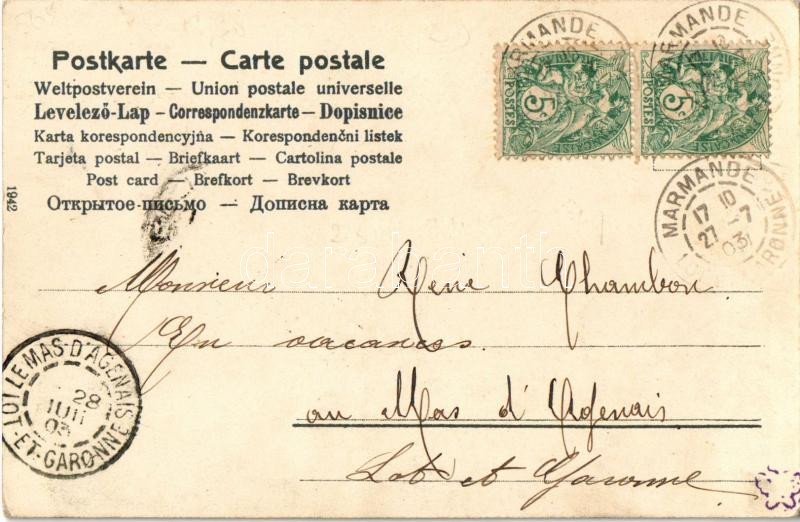 Postkarte — Carte postale
Weltpostverein — Union postale universelle
Levelező-Lap – Correspondenzkarte – Dopisnice
Karta korespondencyjna — Korespondenční listek
Tarjeta postal — Briefkaart — Cartolina postale
Post card — Brefkort — Brevkort
Открытое письмо — Дописна карта
1942
MARMANDE
MARMANDE
5c
POSTES
5c
POSTES
MARMANDE
17 10
27 7
03
darabanth
Monsieur René Chambon
En vacances.
au Mas d'Agenais
Lot et Garonne
LE MAS-D'AGENAIS
28
JUIL
03
LOT-ET-GARONNE